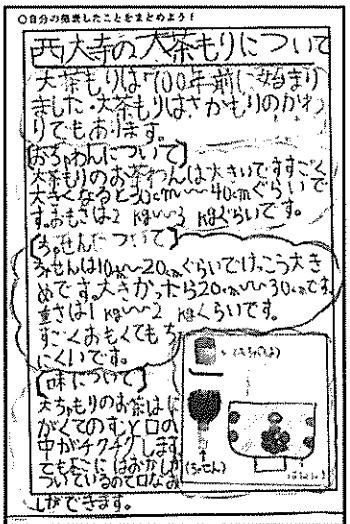 ○自分の発表したことをまとめよう!
西大寺の大茶もりについて
大茶もりは700年前に始まり
ました。大茶もりはさかもりのかわ
りでもあります。
[おちゃわんについて]
大茶もりのお茶わんは大きいですすごく
大きくなると30cm〜40cmぐらいで
す。おもさは2kg〜3kgぐらいです。
[ちゃせんについて]
ちゃせんは10cm〜20cmぐらいでけっこう大き
めです。大きかったら20cm〜30cmです。
重さは1kg〜2kgぐらいです。
すごくおもくてもち
にくいです。
[味について]
大ちゃもりのお茶はに
がくてのむと口の
中がチクチクします
でもよこにはおかしが
ついているので口なお
しができます。
(ちゃせん)